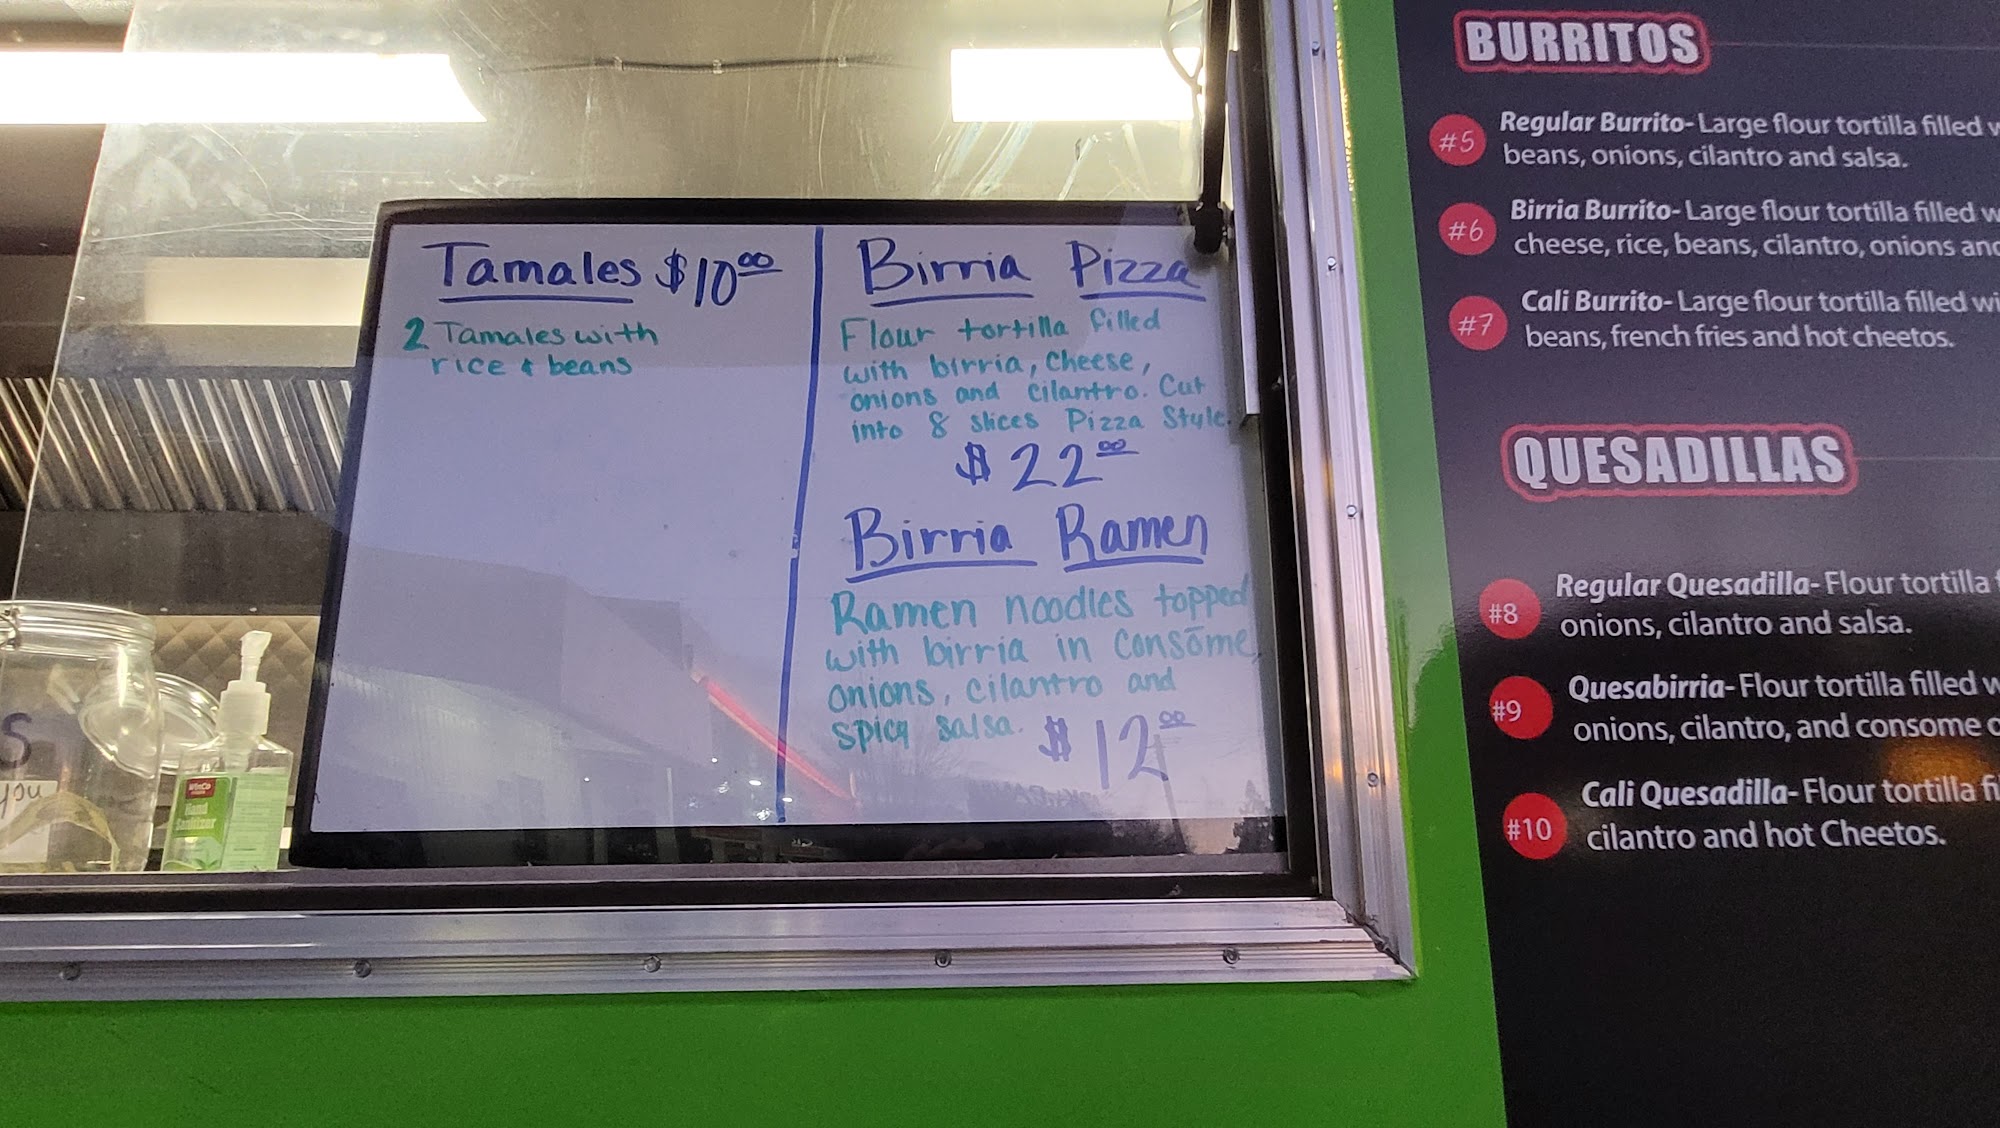 Tamales $10.00
2 Tamales with
rice & beans
Birria Pizza
Flour tortilla filled
with birria, cheese,
onions and cilantro. Cut
into 8 slices Pizza Style.
$22.00
Birria Ramen
Ramen noodles topped
with birria in consōme,
onions, cilantro and
spicy salsa. $12.00
BURRITOS
#5 Regular Burrito- Large flour tortilla filled
beans, onions, cilantro and salsa.
#6 Birria Burrito- Large flour tortilla filled
cheese, rice, beans, cilantro, onions
#7 Cali Burrito- Large flour tortilla filled
beans, french fries and hot cheetos.
QUESADILLAS
#8 Regular Quesadilla- Flour tortilla
onions, cilantro and salsa.
#9 Quesabirria- Flour tortilla filled
onions, cilantro, and consome
#10 Cali Quesadilla- Flour tortilla
cilantro and hot Cheetos.
S
you
WinCo
Hand
Sanitizer